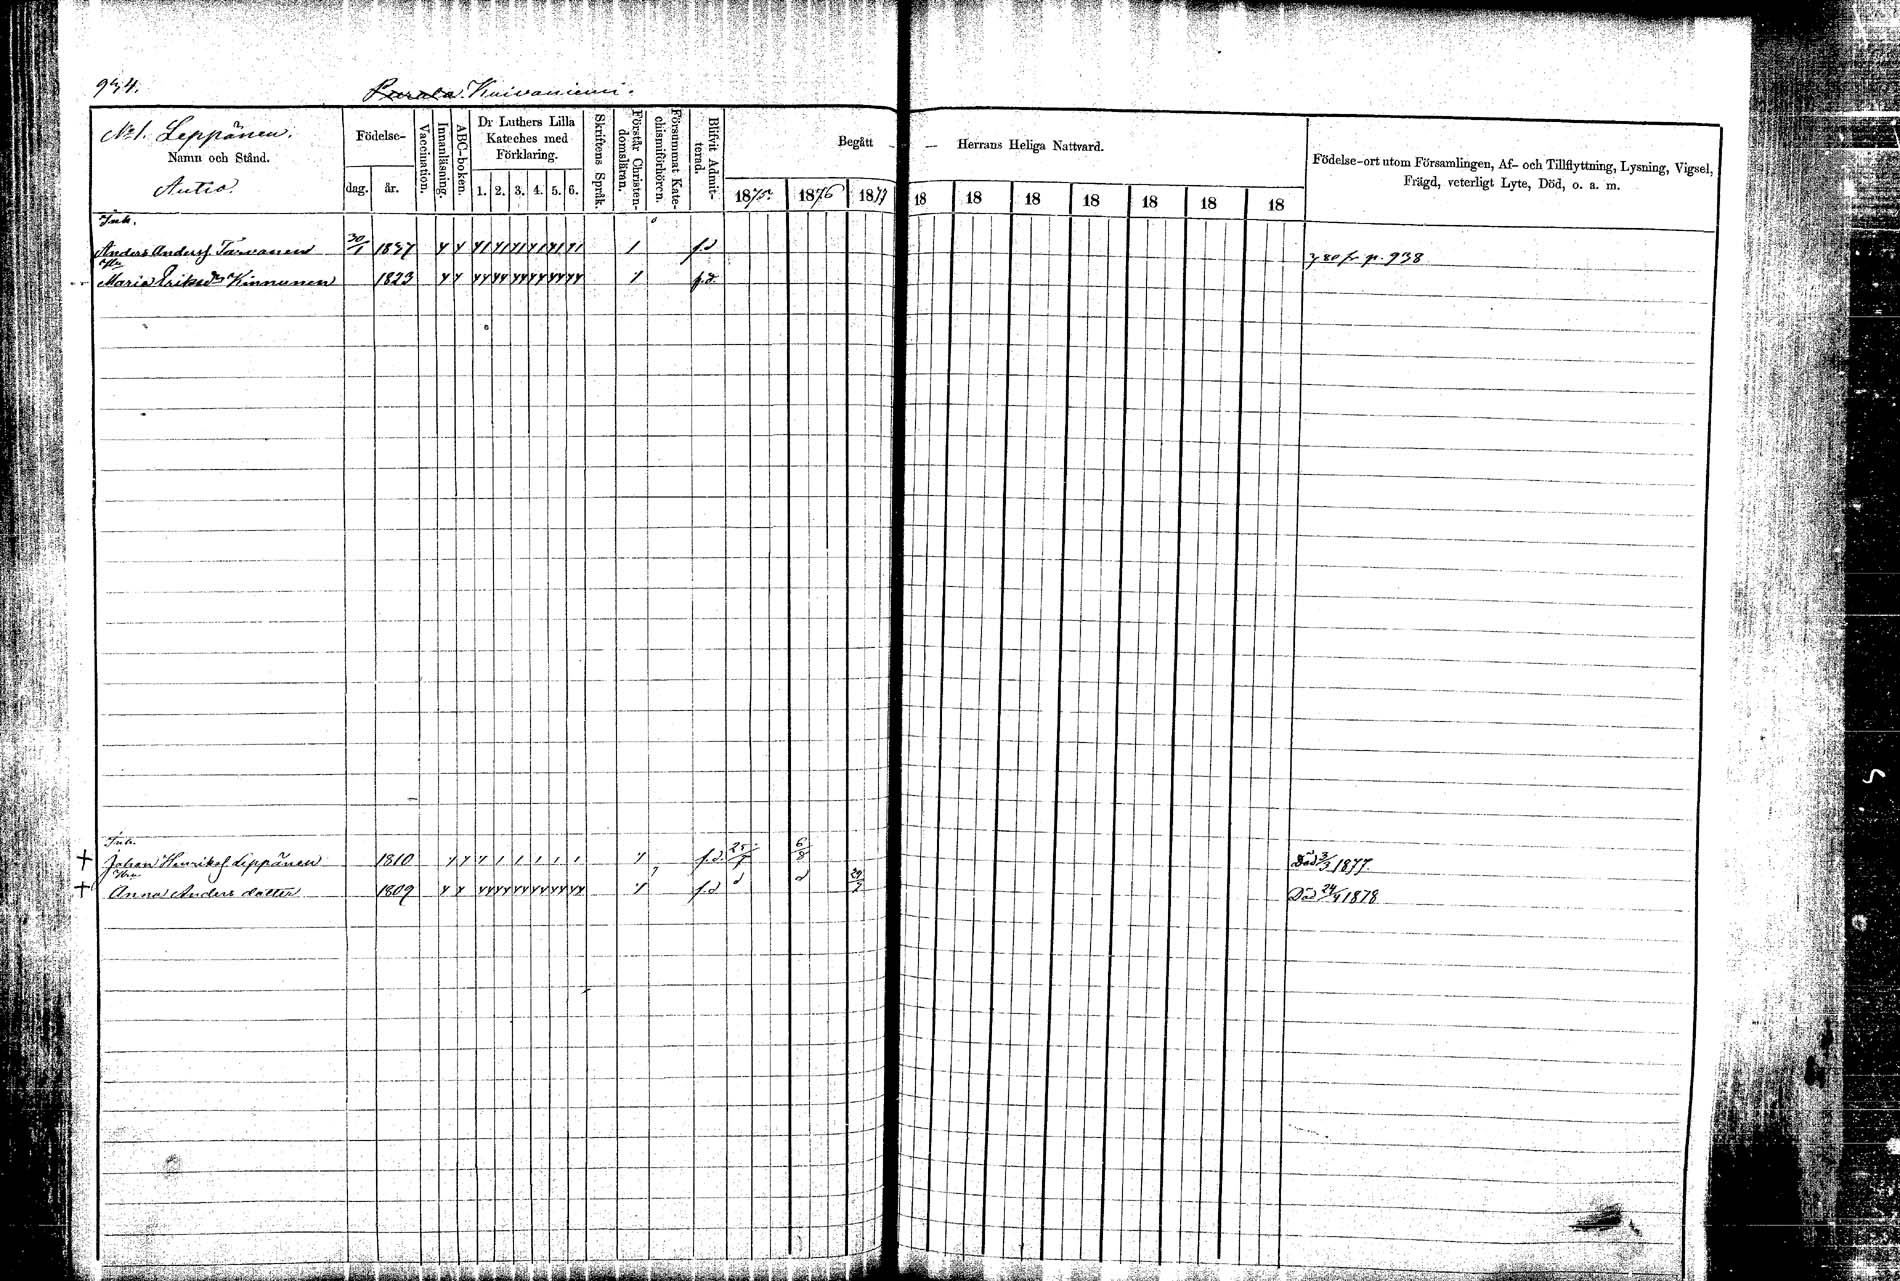 934.
Kuivaniemi.
No 1. Leppänen.
Namn och Stånd.
Autio.
Födelse-
dag. år.
Vaccination.
Innanläsning.
ABC-boken.
Dr Luthers Lilla
Kateches med
Förklaring.
1. 2. 3. 4. 5. 6.
Skriftens Språk.
Förstår Christen-
domsläran.
Försummat Kate-
chismiförhören.
Blifvit Admit-
terad.
Begått — — Herrans Heliga Nattvard.
1875. 1876 1877 18 18 18 18 18 18 18
Födelse-ort utom Församlingen, Af- och Tillflyttning, Lysning, Vigsel,
Frägd, veterligt Lyte, Död, o. a. m.
Inh.
Anders Anders. Tarvanen 30/1 f.d p. 938
Hu
Maria Eriksd Kinnunen 1823 f.d.
Inh.
+ Johan Henriks. Leppänen 1810 f.d. 6/8 Död 3/3 1877.
Hu
+ Anna Anders dotter 1809 f.d d d Död 24/4 1878